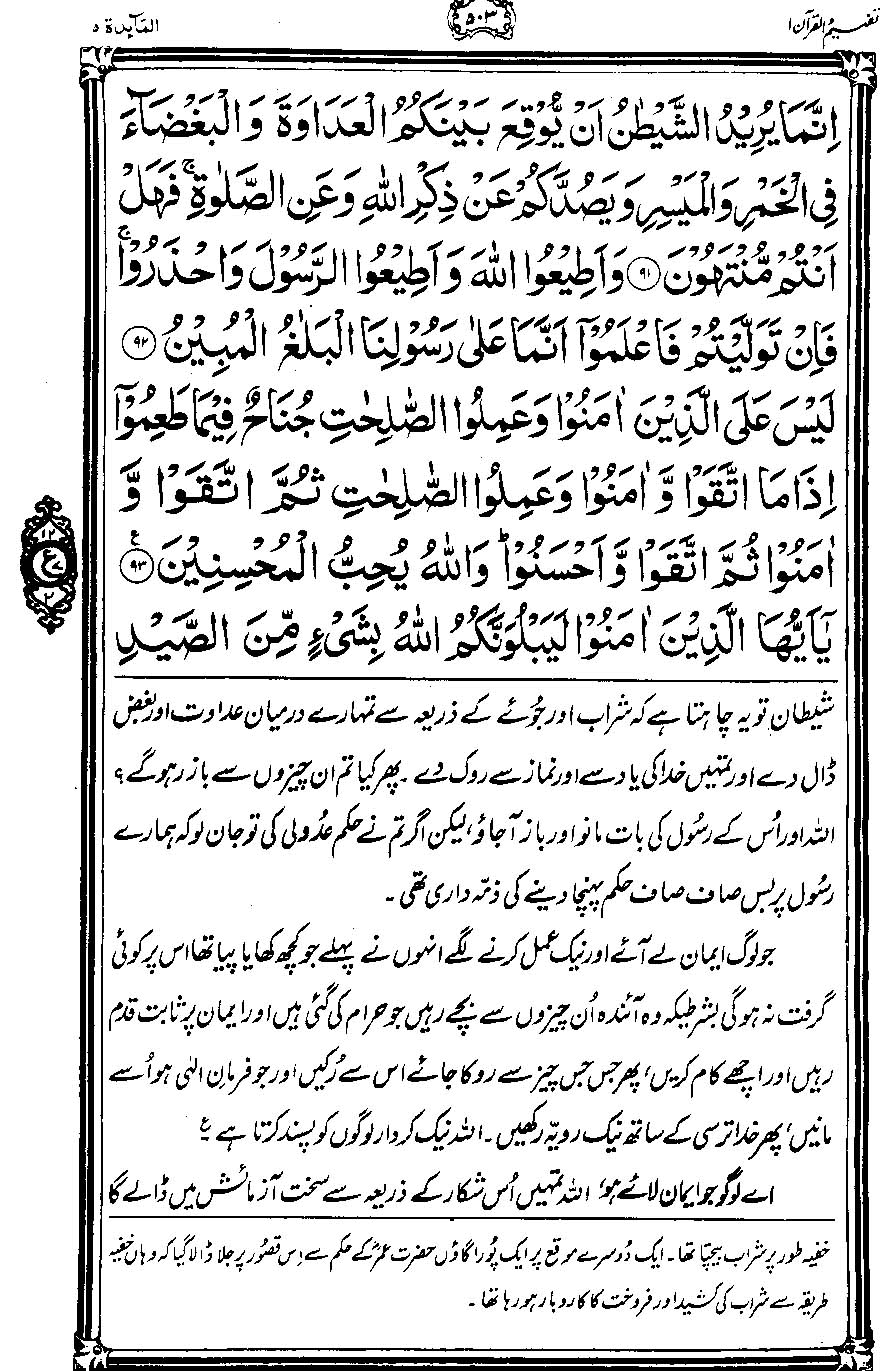 تفہیم القرآن ۱
۵۰۳
المآیدة ۵
اِنَّمَا يُرِيْدُ الشَّيْطٰنُ اَنْ يُّوْقِعَ بَيْنَكُمُ الْعَدَاوَةَ وَالْبَغْضَآءَ
فِي الْخَمْرِ وَالْمَيْسِرِ وَيَصُدَّكُمْ عَنْ ذِكْرِ اللّٰهِ وَعَنِ الصَّلٰوةِ ۚ فَهَلْ
اَنْتُمْ مُّنْتَهُوْنَ ﴿۹۱﴾ وَاَطِيْعُوا اللّٰهَ وَاَطِيْعُوا الرَّسُوْلَ وَاحْذَرُوْا ۚ
فَاِنْ تَوَلَّيْتُمْ فَاعْلَمُوْٓا اَنَّمَا عَلٰى رَسُوْلِنَا الْبَلٰغُ الْمُبِيْنُ ﴿۹۲﴾
لَيْسَ عَلَى الَّذِيْنَ اٰمَنُوْا وَعَمِلُوا الصّٰلِحٰتِ جُنَاحٌ فِيْمَا طَعِمُوْٓا
اِذَا مَا اتَّقَوْا وَّاٰمَنُوْا وَعَمِلُوا الصّٰلِحٰتِ ثُمَّ اتَّقَوْا وَّ
اٰمَنُوْا ثُمَّ اتَّقَوْا وَّاَحْسَنُوْا ؕ وَاللّٰهُ يُحِبُّ الْمُحْسِنِيْنَ ﴿۹۳﴾ ع
۱۲
ع ۷
۲
يٰٓاَيُّهَا الَّذِيْنَ اٰمَنُوْا لَيَبْلُوَنَّكُمُ اللّٰهُ بِشَيْءٍ مِّنَ الصَّيْدِ
شیطان تو یہ چاہتا ہے کہ شراب اور جُوئے کے ذریعہ سے تمہارے درمیان عداوت اور بغض
ڈال دے اور تمہیں خدا کی یاد سے اور نماز سے روک دے ۔ پھر کیا تم ان چیزوں سے باز رہو گے؟
اللہ اور اُس کے رسُول کی بات مانو اور باز آجاؤ، لیکن اگر تم نے حکم عدُولی کی تو جان لو کہ ہمارے
رسُول پر بس صاف صاف حکم پہنچا دینے کی ذمّہ داری تھی ۔
جو لوگ ایمان لے آئے اور نیک عمل کرنے لگے انہوں نے پہلے جو کچھ کھایا پیا تھا اس پر کوئی
گرفت نہ ہوگی بشرطیکہ وہ آئندہ اُن چیزوں سے بچے رہیں جو حرام کی گئی ہیں اور ایمان پر ثابت قدم
رہیں اور اچھے کام کریں، پھر جس جس چیز سے روکا جائے اس سے رُکیں اور جو فرمانِ الٰہی ہو اُسے
مانیں، پھر خدا ترسی کے ساتھ نیک رویّہ رکھیں ۔ اللہ نیک کردار لوگوں کو پسند کرتا ہے ع
اے لوگو جو ایمان لائے ہو، اللہ تمہیں اُس شکار کے ذریعہ سے سخت آزمائش میں ڈالے گا
خفیہ طور پر شراب بیچتا تھا ۔ ایک دُوسرے موقع پر ایک پُورا گاؤں حضرت عمرؓ کے حکم سے اِس قصُور پر جلا ڈالا گیا کہ وہاں خفیہ
طریقہ سے شراب کی کشید اور فروخت کا کاروبار ہو رہا تھا ۔